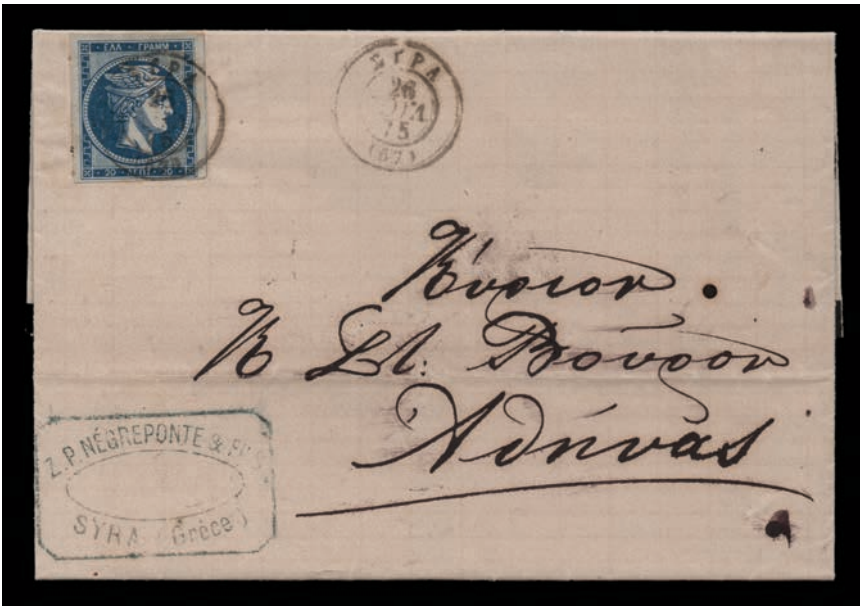 ΕΛΛ ΓΡΑΜΜ
20 ΛΕΠΤ 20
ΣΥΡΑ
26
75
(67)
Κύριον
Κ Στ. Βούρον
Ἀθήνας
Z.P. NÉGREPONTE & FILS
SYRA (Grèce)